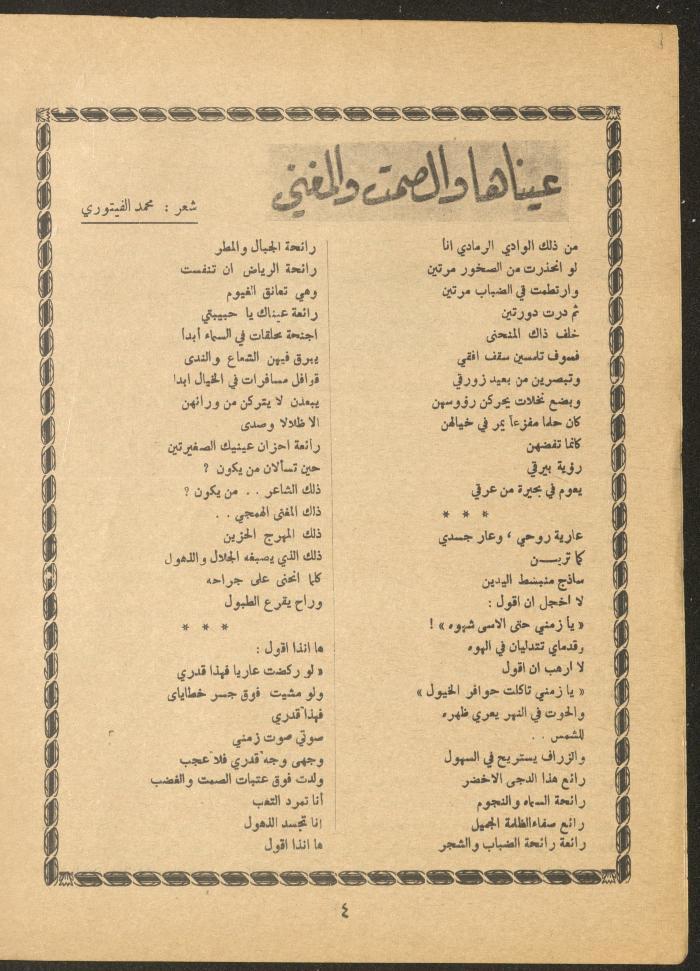 عيناها والصمت والمغني
شعر : محمد الفيتوري
من ذلك الوادي الرمادي انا
لو انحدرت من الصخور مرتين
وارتطمت في الضباب مرتين
ثم درت دورتين
خلف ذاك المنحنى
فسوف تلمسين سقف افقي
وتبصرين من بعيد زورقي
وبضع نخلات يحركن رؤوسهن
كان حلما مفزعاً يمر في خيالهن
كانما تفضهن
رؤية بيرقي
يعوم في بحيرة من عرقي
* * *
عارية روحي ، وعار جسدي
كما تريـــن
ساذج منبسط اليدين
لا اخجل ان اقول :
« يا زمني حتى الاسى شهوه » !
وقدماي تتدليان في الهوه
لا ارهب ان اقول
« يا زمني تاكلت حوافر الخيول »
والحوت في النهر يعري ظهره
للشمس . .
والزراف يستريح في السهول
رائع هذا الدجى الاخضر
رائحة السماء والنجوم
رائع صفاء الظلمة الجميل
رائعة رائحة الضباب والشجر
رائحة الجبال والمطر
رائحة الرياض ان تنفست
وهي تعانق الغيوم
رائعة عيناك يا حبيبتي
اجنحة محلقات في السماء أبدأ
يبرق فيهن الشعاع والندى
قوافل مسافرات في الخيال ابدا
يبعدن لا يتركن من ورائهن
الا ظلالا وصدى
رائعة احزان عينيك الصغيرتين
حين تسألان من يكون ؟
ذلك الشاعر . . من يكون ؟
ذاك المغنى الهمجي . .
ذلك المهرج الحزين
ذلك الذي يصبغه الجلال والذهول
كلما انحنى على جراحه
وراح يقرع الطبول
* * *
ها انذا اقول :
« لو ركضت عاريا فهذا قدري
ولو مشيت فوق جسر خطاياى
فهذا قدري
صوتي صوت زمني
وجهى وجه قدري فلا عجب
ولدت فوق عتبات الصمت والغضب
أنا تمرد التعب
انا تجسد الذهول
ها انذا اقول
٤